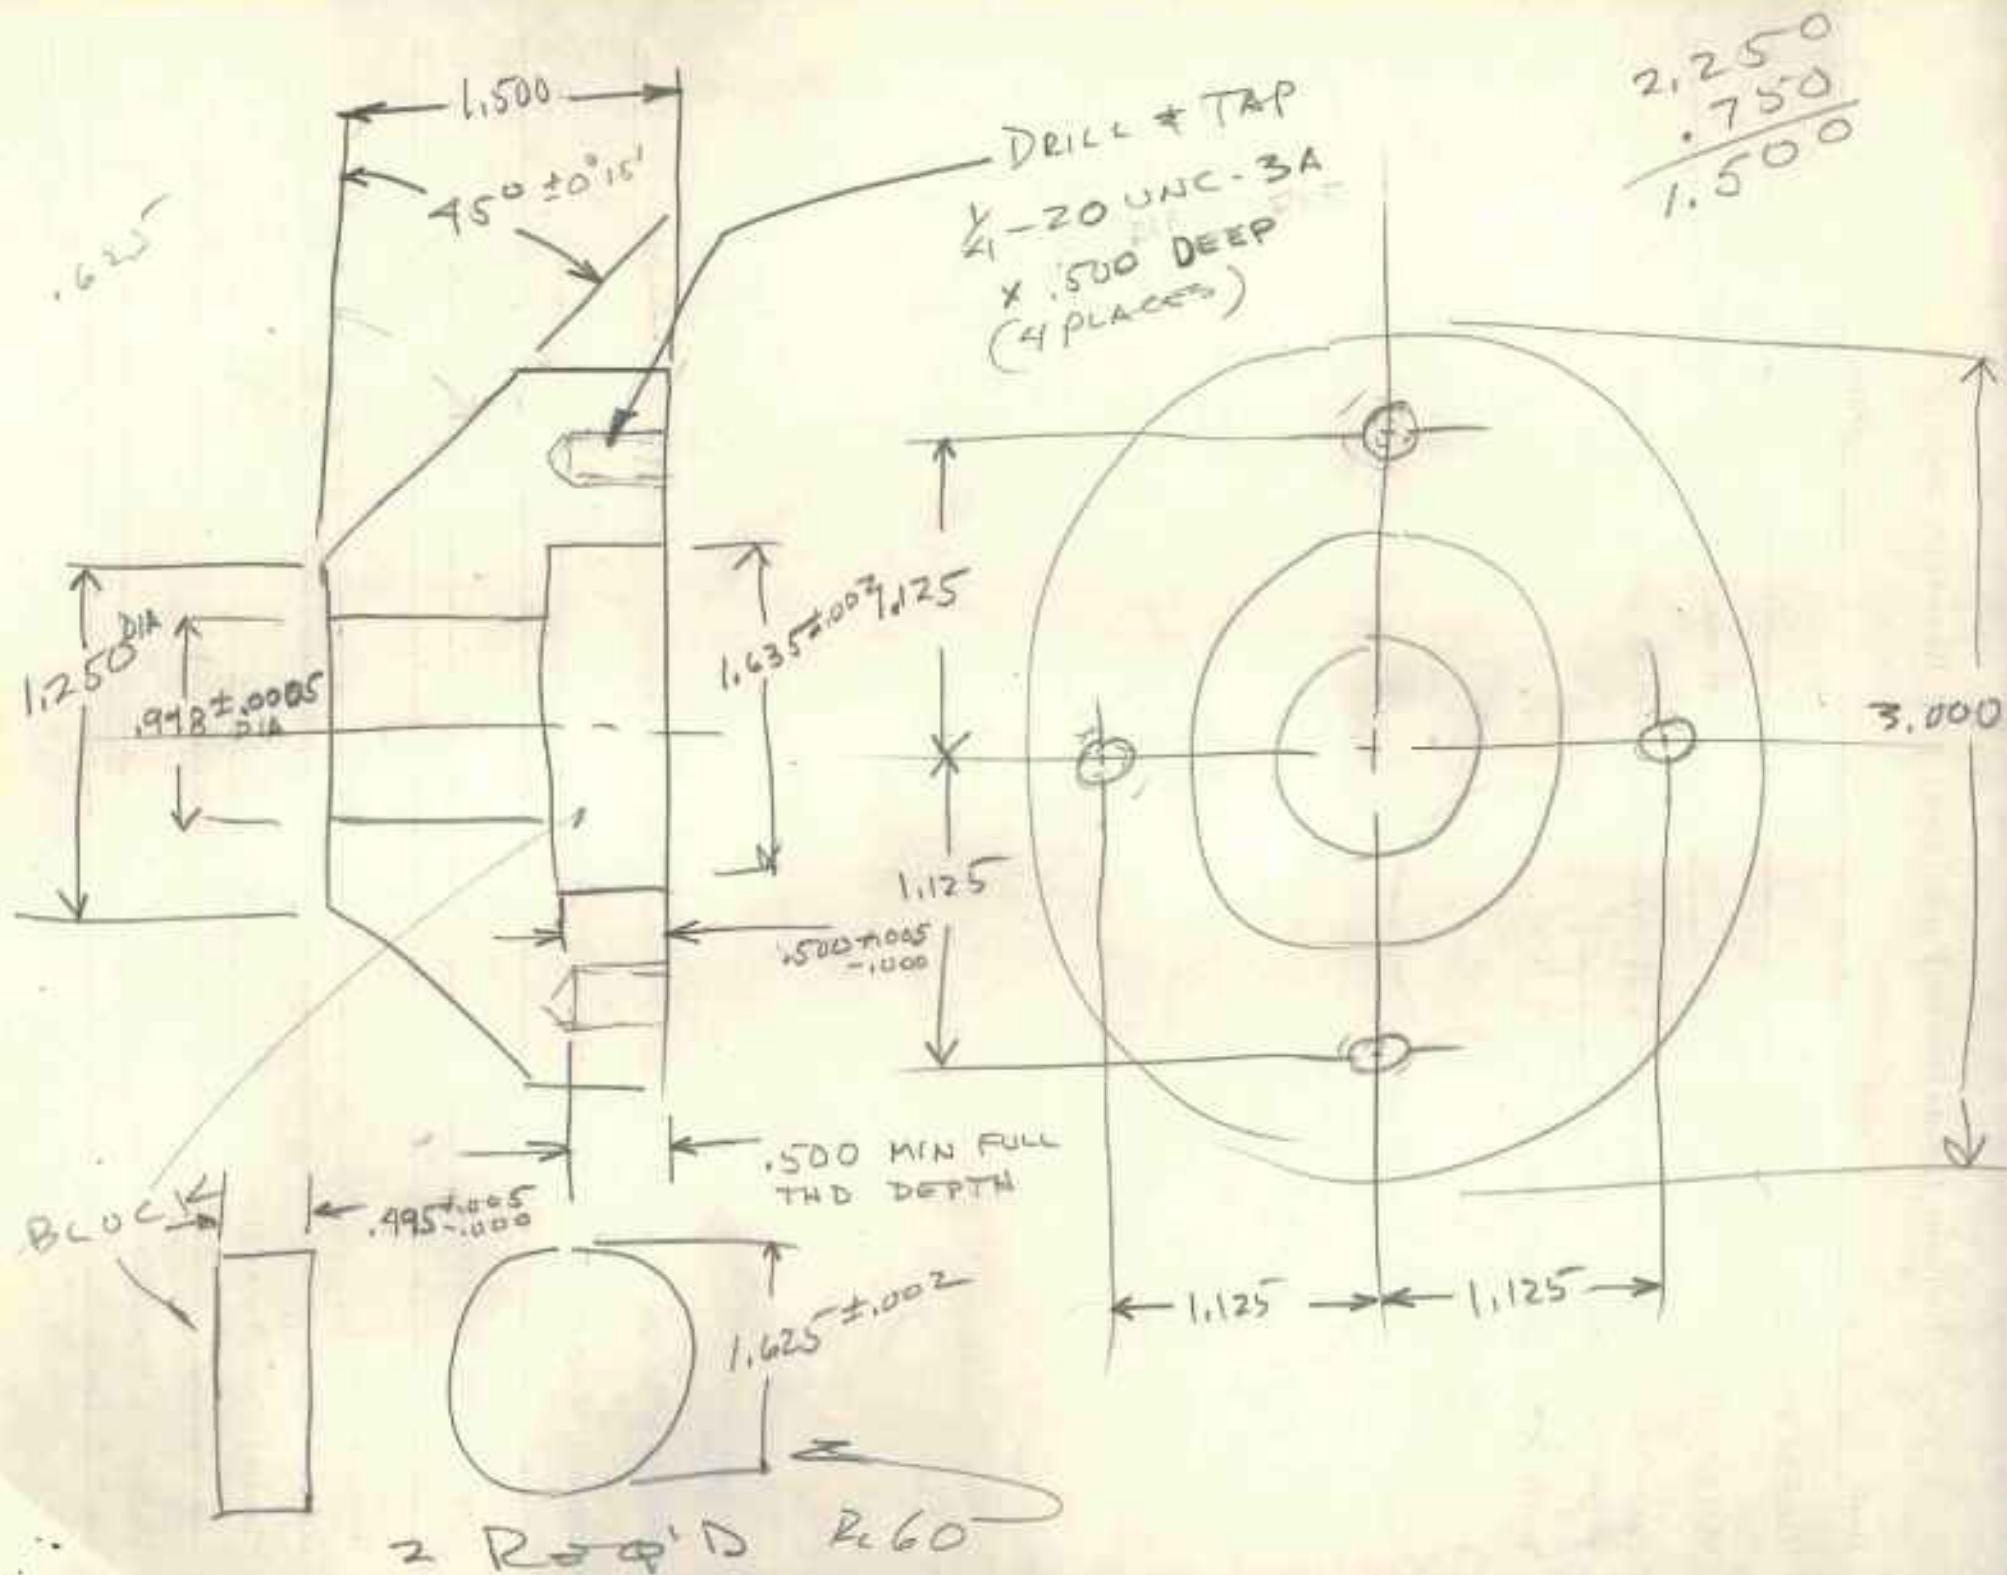 1.500
45° ±0°15'
DRILL & TAP
1/4-20 UNC-3A
x .500 DEEP
(4 PLACES)
2.250
.750
1.500
.625
1.250 DIA
.998 ±.0005
DIA
1.635 ±.002
1.125
1.125
3.000
.500 +.005
-.000
.500 MIN FULL
THD DEPTH
BLOCK
.495 +.005
-.000
1.625 ±.002
1.125
1.125
2 REQ'D Rc 60